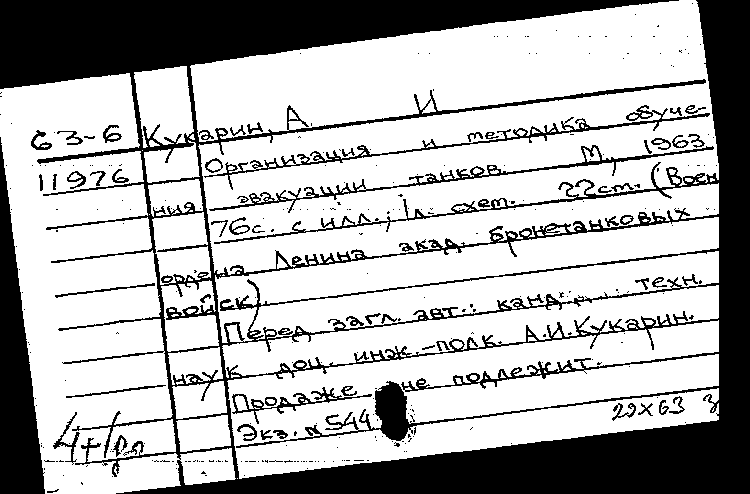 63-6 Кукарин, А. И
11976 Организация и методика обуче-
ния эвакуации танков. М., 1963
76с. с илл.; 1л. схем. 22см. (Воен
ордена Ленина акад. бронетанковых
войск).
Перед загл. авт.: канд. техн.
наук доц. инж.-полк. А.И.Кукарин.
Продаже не подлежит.
Экз. №544
22х63 з